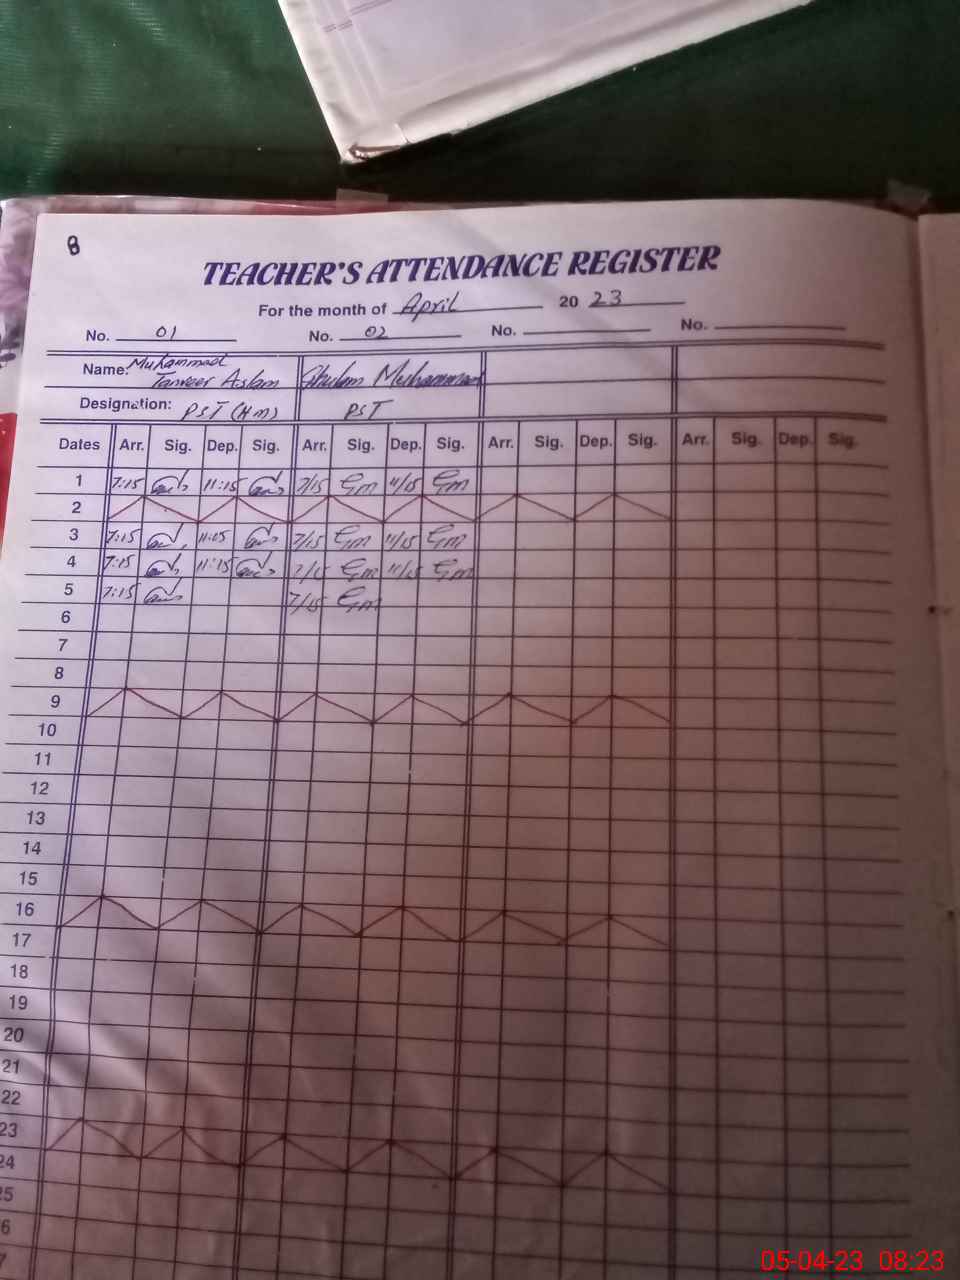 8
TEACHER'S ATTENDANCE REGISTER
For the month of April 2023
No. 01 No. 02 No. No.
Name: Muhammad Tanveer Aslam Ghulam Muhammad
Designation: PST (Hm) PST
Dates Arr. Sig. Dep. Sig. Arr. Sig. Dep. Sig. Arr. Sig. Dep. Sig. Arr. Sig. Dep. Sig.
1 7:15 11:15 7/15 Gm 11/15 Gm
2
3 7:15 11:15 7/15 Gm 11/15 Gm
4 7:15 11:15 7/15 Gm 11/15 Gm
5 7:15 7/15 Gm
6
7
8
9
10
11
12
13
14
15
16
17
18
19
20
21
22
23
24
25
6
7
05-04-23 08:23